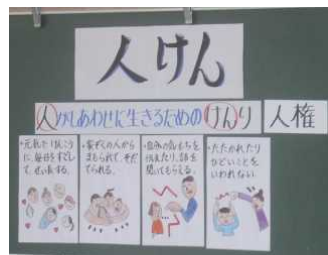 人けん
人がしあわせに生きるためのけんり
人権
・元気にけんこう
に、毎日をすごし
て、せい長する。
・家ぞくの人から
まもられて、そだ
てられる。
・自分の気もちを
伝えたり、話を
聞いてもらえる。
・たたかれたり
ひどいことを
いわれない。